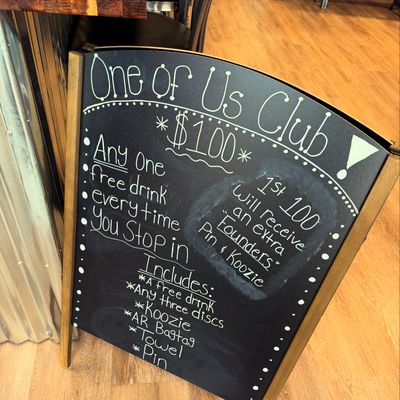 One of Us Club!
*$100*
Any one
free drink
every time
you Stop in
1st 100
Will receive
an extra
"Founders"
Pin & Koozie
Includes:
*A free drink
*Any three discs
*Koozie
*AR Bagtag
*Towel
*Pin